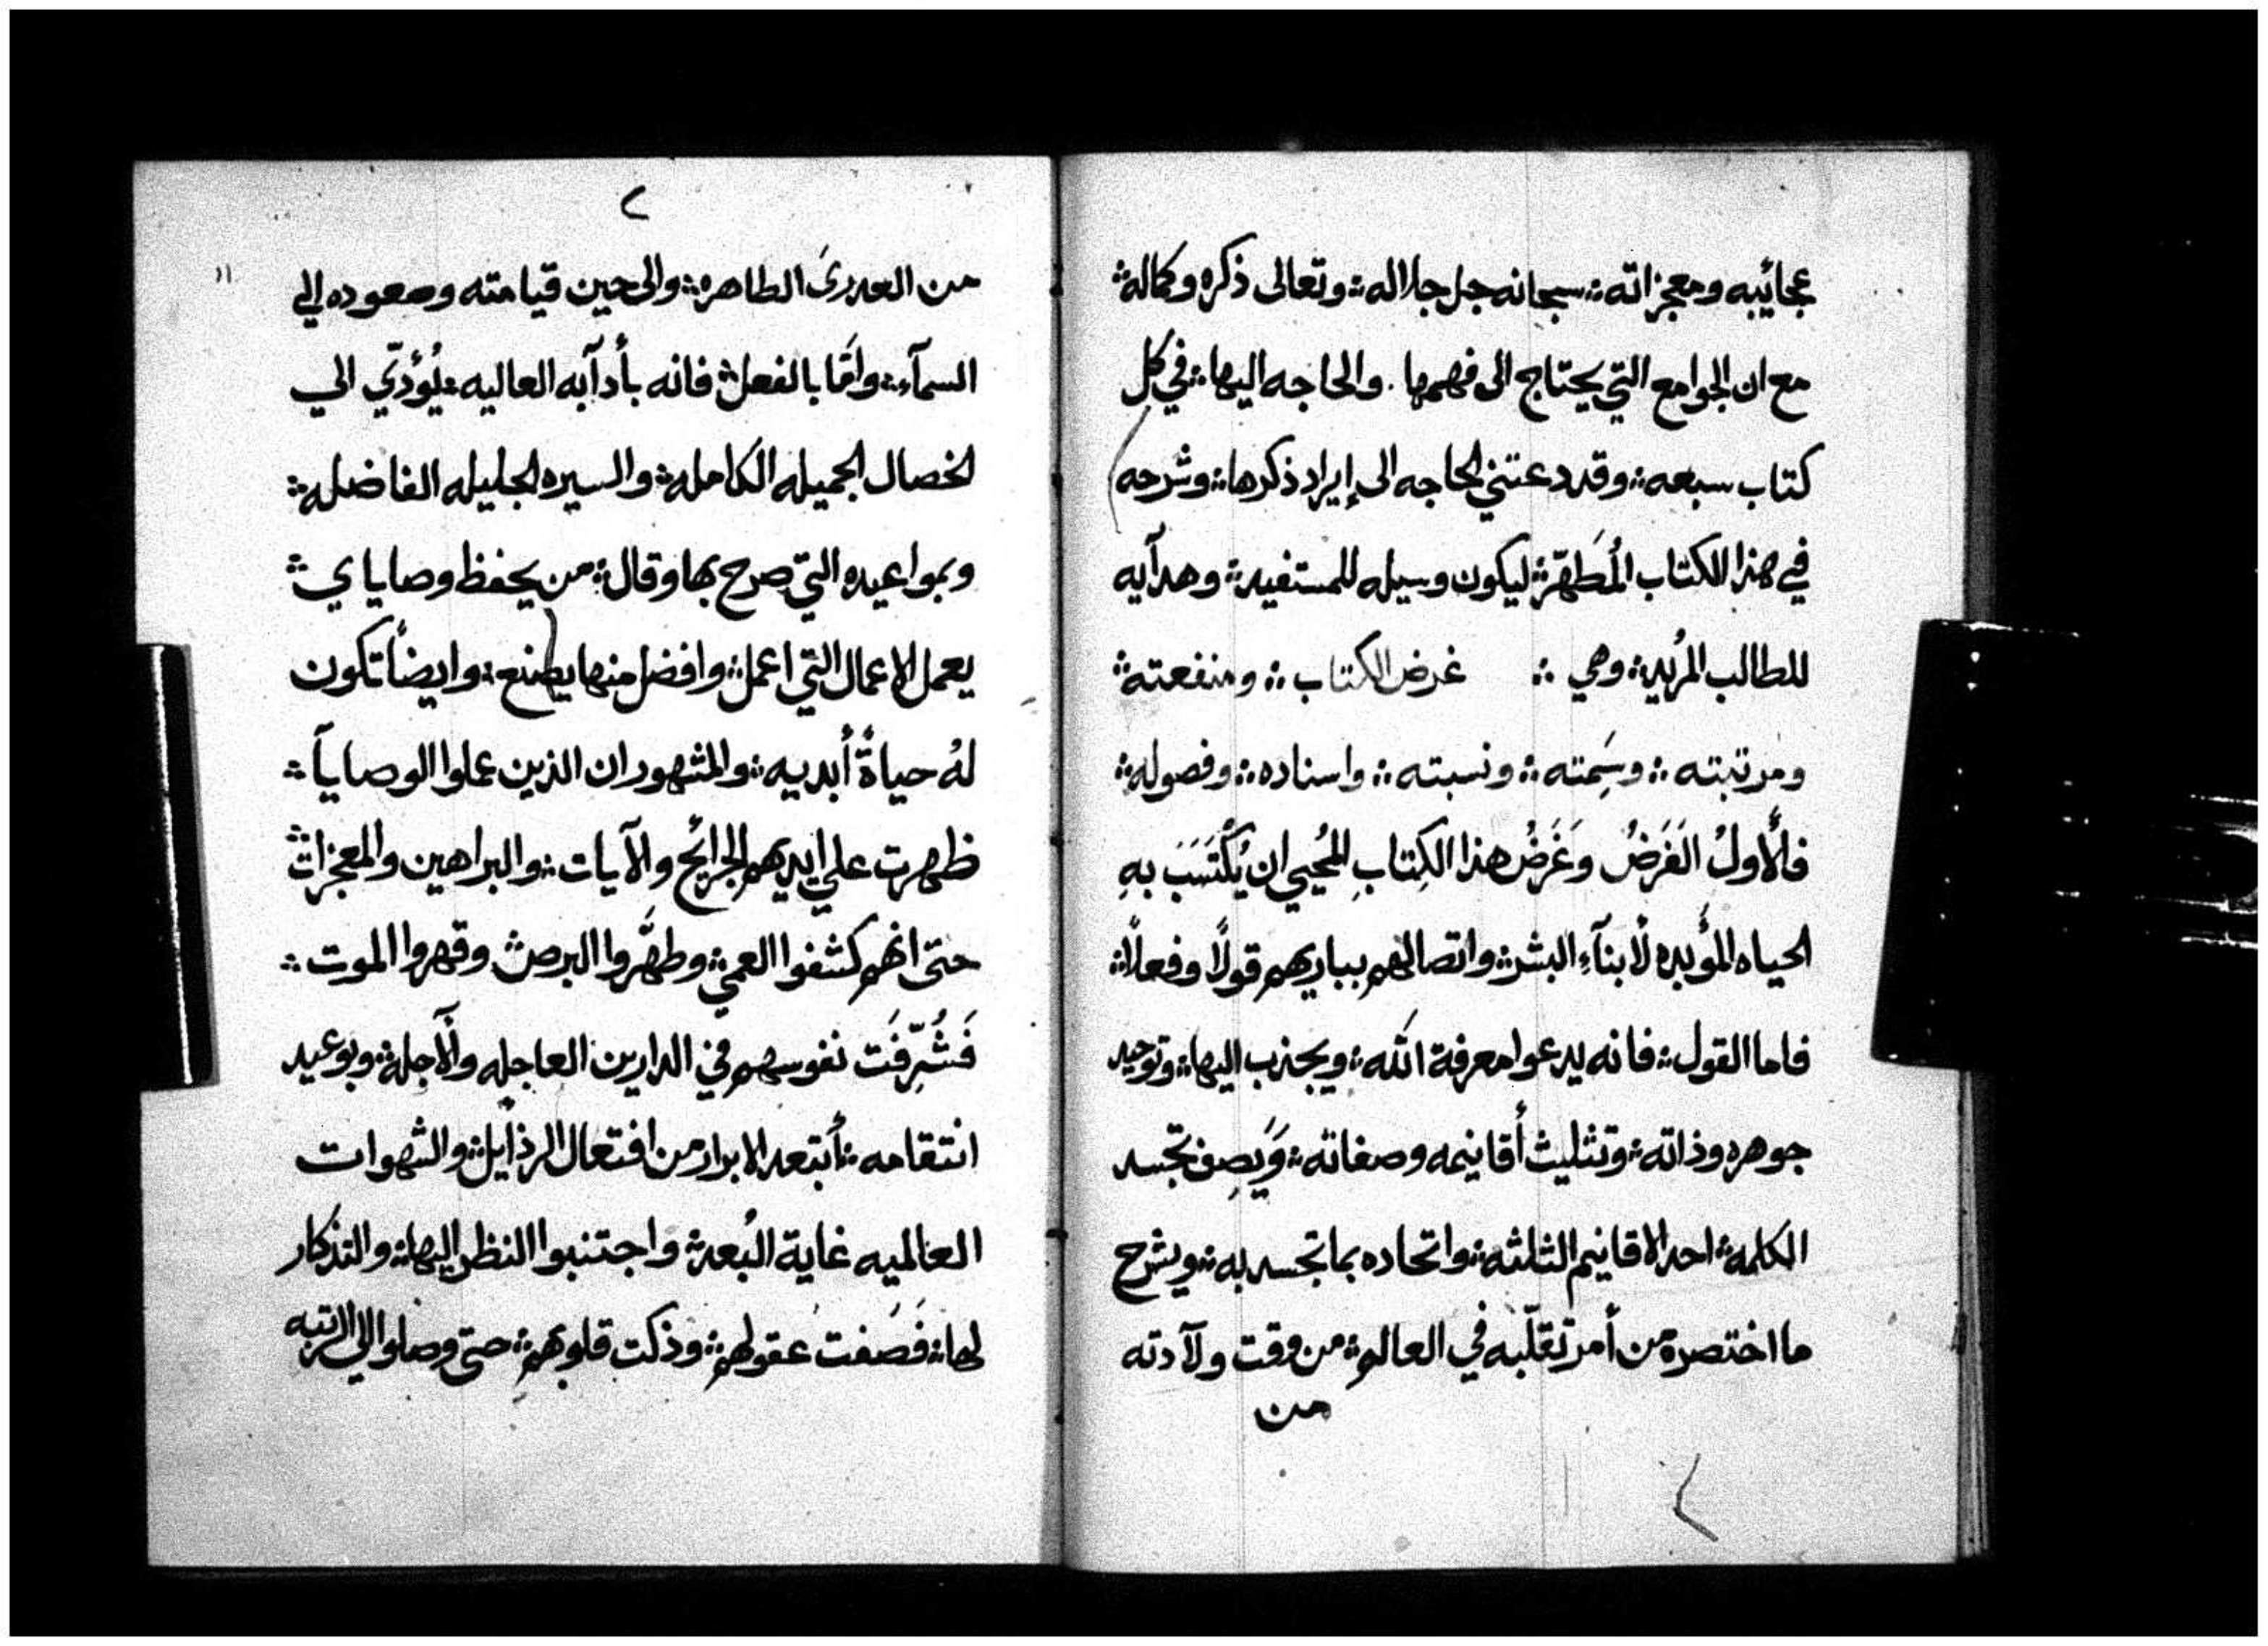 عجائيبه ومعجزاته ܀ سبحانه جل جلاله ܀ وتعالى ذكره وكماله ܀
مع ان الجوامع التي يحتاج الى فهمها . والحاجه اليها ܀ في كل
كتاب سبعه ܀ وقد دعتني الحاجه الى إيراد ذكرها ܀ وشرحه
في هذا الكتاب المُطَهّر ܀ ليكون وسيله للمستفيد ܀ وهدآيه
للطالب المرُيد ܀ وهي ܀ غرض الكتاب ܀ ومنفعته ܀
ومرتبته ܀ وسَِمته ܀ ونسبته ܀ واسناده ܀ وفصوله ܀
فالأَولُ الغَرَضُ وَغَرَضُ هذا الكِتابِ المُحيي ان يُكْتَسَبَ بهِ
الحياه المؤَبده لأبنآءِ البشر ܀ واتصالهم بباريهم قولًا وفعلًا ܀
فاما القول ܀ فانه يدعوا معرفة الله ܀ ويجذب اليها ܀ وتوحيد
جوهره وذاته ܀ وتثليث أقانيمه وصفاته ܀ وَيَصِف تجسد
الكلمه ܀ احد الاقانيم الثلثه ܀ واتحاده بما تجسد به ܀ ويشرح
ما اختصره من أمر تقلّبه في العالم ܀ من وقت ولآدته
من
٢
١١
من العدرىَ الطاهره ܀ والى حين قيامته وصعوده إلى
السمآءِ ܀ وامّا بالفعل ܀ فانه بأدآبه العاليه ܀ يُؤدّي الي
الخصال الجميله الكامله ܀ والسيره الجليله الفاضله ܀
وبمواعيده التي صرح بها وقال ܀ من يحفظ وصاياي ܀
يعمل الاعمال التي اعمل ܀ وافضل منها يصنع ܀ وايضاً تكون
لهُ حياةً أبديه ܀ والمشهور ان الذين عملوا الوصاياَ ܀
ظهرت علي ايديهم الجرائح والآيات ܀ والبراهين والمعجزات ܀
حتى انهم كشفوا العمي ܀ وطهَّروا البرص ܀ وقهروا الموت ܀
فَشُرِّفَت نفوسهم في الدارين العاجله والآجله ܀ وبوعيد
انتقامه ܀ أبتعد الابرار من افتعال الرذايل ܀ والشهوات
العالميه غاية البُعد ܀ واجتنبوا النظر اليها ܀ والتذكار
لها ܀ فَصَفت عقولهم ܀ وذكت قلوبهم ܀ حتى وصلوا الي الرتبه